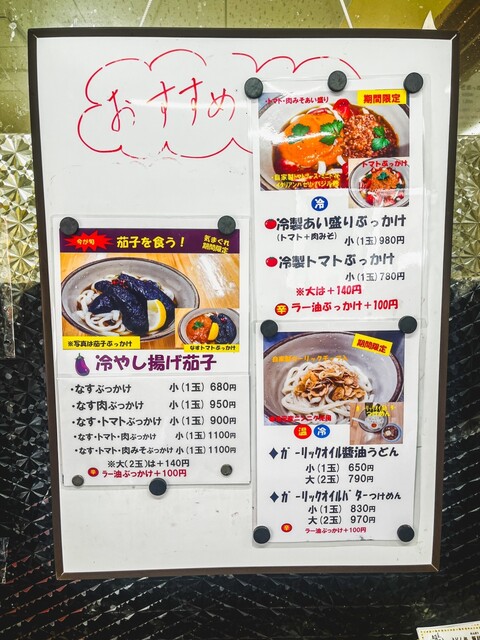 おすすめ
今が旬
茄子を食う!
気まぐれ
期間限定
※写真は茄子ぶっかけ
なすトマトぶっかけ
冷やし揚げ茄子
・なすぶっかけ 小(1玉) 680円
・なす肉ぶっかけ 小(1玉) 950円
・なす・トマトぶっかけ 小(1玉) 900円
・なす・トマト・肉ぶっかけ 小(1玉) 1100円
・なす・トマト・肉みそぶっかけ 小(1玉) 1100円
※大(2玉)は+140円
辛 ラー油ぶっかけ+100円
トマト・肉みそあい盛り
期間限定
トマトぶっかけ
冷
冷製あい盛りぶっかけ
(トマト+肉みそ) 小(1玉)980円
冷製トマトぶっかけ
小(1玉)780円
※大は+140円
辛 ラー油ぶっかけ+100円
期間限定
温 冷
◆ガーリックオイル醬油うどん
小(1玉) 650円
大(2玉) 790円
◆ガーリックオイルバターつけめん
小(1玉) 830円
大(2玉) 970円
辛 ラー油ぶっかけ+100円